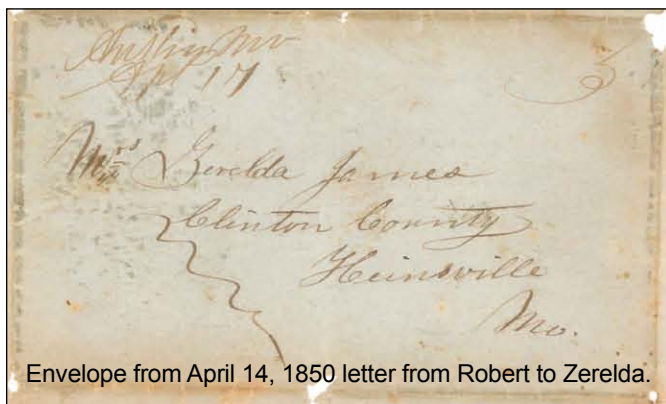 Mo
Apl 17
3
Mrs Zerelda James
Clinton County
Heinsville
Mo.
Envelope from April 14, 1850 letter from Robert to Zerelda.